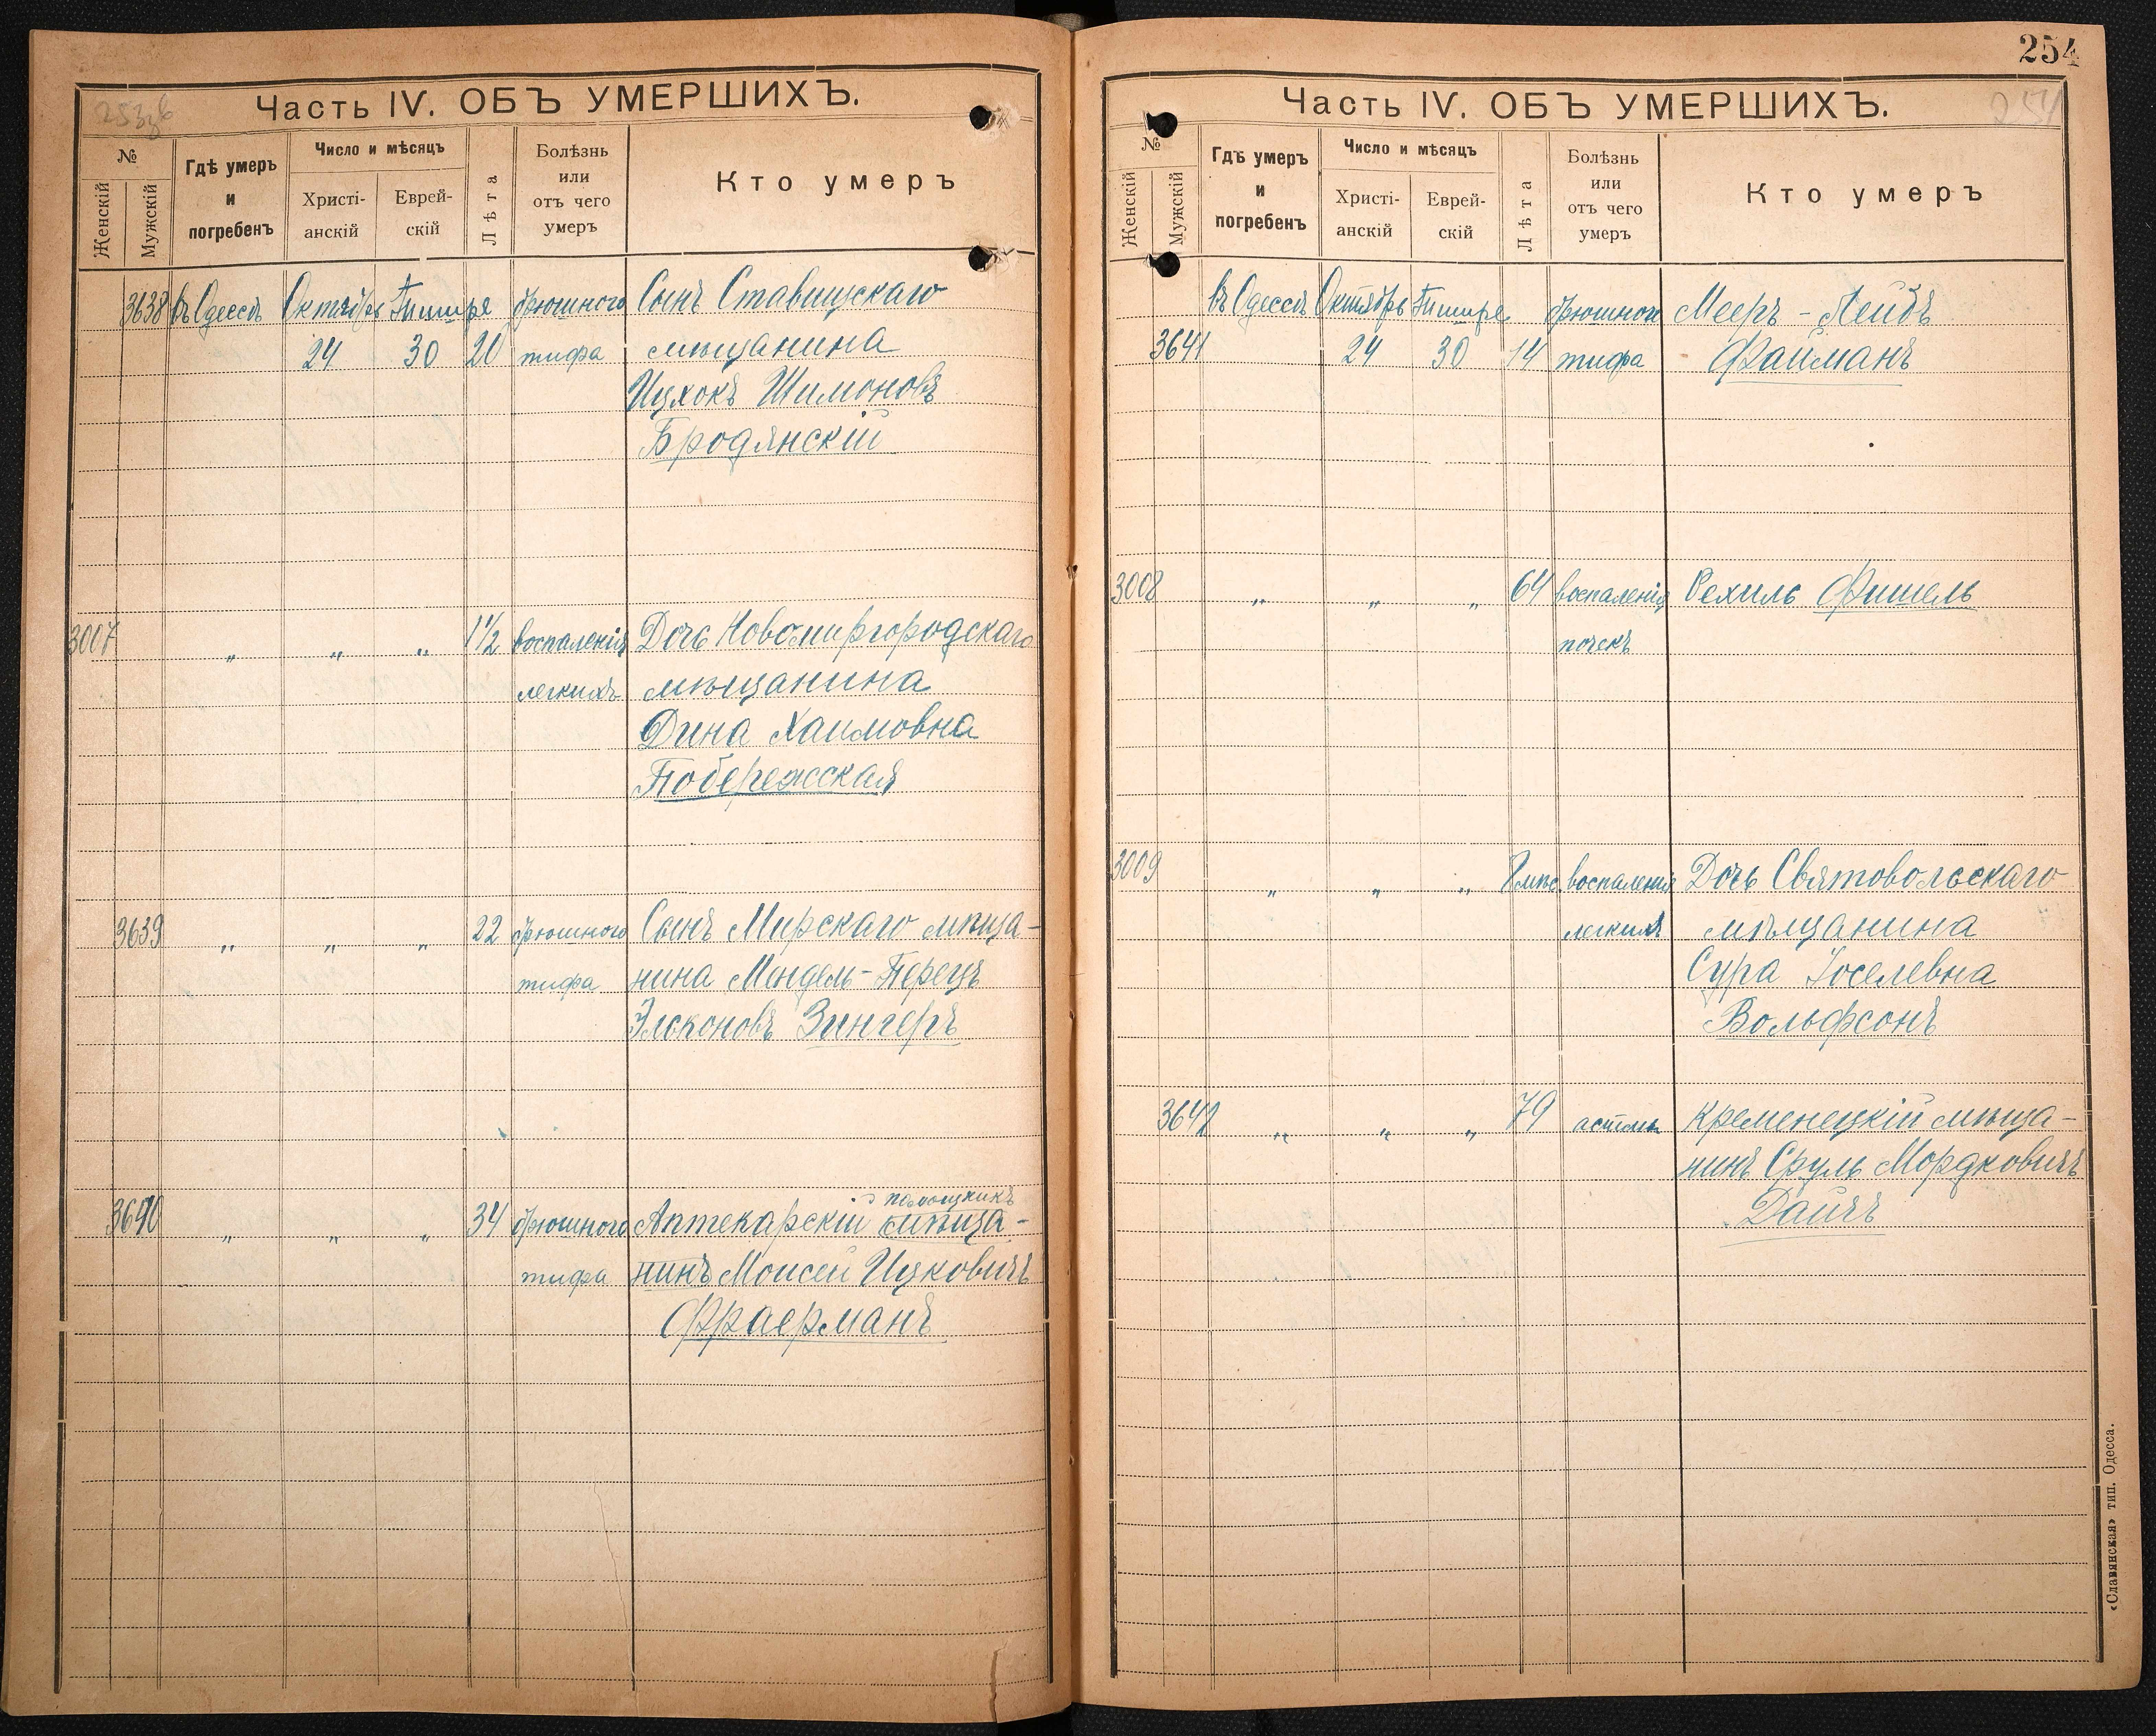 Часть IV. ОБЪ УМЕРШИХЪ.
№
Женскій
Мужскій
Гдѣ умеръ
и
погребенъ
Число и мѣсяцъ
Христі-
анскій
Еврей-
скій
Лѣта
Болѣзнь
или
отъ чего
умеръ
Кто умеръ
3638 въ Одессѣ Октябрь Тишре брюшного Сынъ Ставищскаго
24 30 20 тифа мѣщанина
Ицхокъ Шимоновъ
Бродянскій
3007 „ „ „ 1½ воспаленія Дочь Новомиргородскаго
легкихъ мѣщанина
Дина Хаимовна
Побережская
3639 „ „ „ 22 брюшного Сынъ Мирскаго мѣща-
тифа нина Мендель-Перецъ
Эльконовъ Зингеръ
помощникъ
3640 „ „ „ 34 брюшного Аптекарскій мѣща-
тифа нинъ Моисей Ицковичъ
Фраерманъ
254
Часть IV. ОБЪ УМЕРШИХЪ.
251
№
Женскій
Мужскій
Гдѣ умеръ
и
погребенъ
Число и мѣсяцъ
Христі-
анскій
Еврей-
скій
Лѣта
Болѣзнь
или
отъ чего
умеръ
Кто умеръ
въ Одессѣ Октябрь Тишре брюшного Мееръ-Лейбъ
3641 24 30 14 тифа Файманъ
3008 „ „ „ 64 воспаленія Рехиль Фишель
почекъ
3009 „ „ „ воспаленія Дочь Святовольскаго
легкихъ мѣщанина
Сура Іоселевна
Вольфсонъ
3642 „ „ „ 79 астмы Кременецкій мѣща-
нинъ Сруль Мордковичъ
Дайчъ
«Славянская» тип. Одесса.